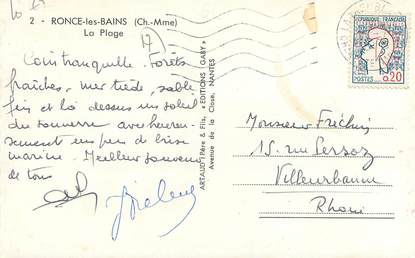 2 - RONCE-les-BAINS (Ch.-Mme)
La Plage
17
Coin tranquille. Forêts
fraîches, mer tiède, sable
fin et là dessus un soleil
du tonnerre avec heureu-
sement un peu de brise
marine. Meilleur souvenir
de tous
"EDITIONS GABY"
ARTAUD Père & Fils,
Avenue de la Close, NANTES
REPUBLIQUE FRANÇAISE
POSTES
0,20
Monsieur Fréchin
15 rue Persoz
Villeurbanne
Rhône